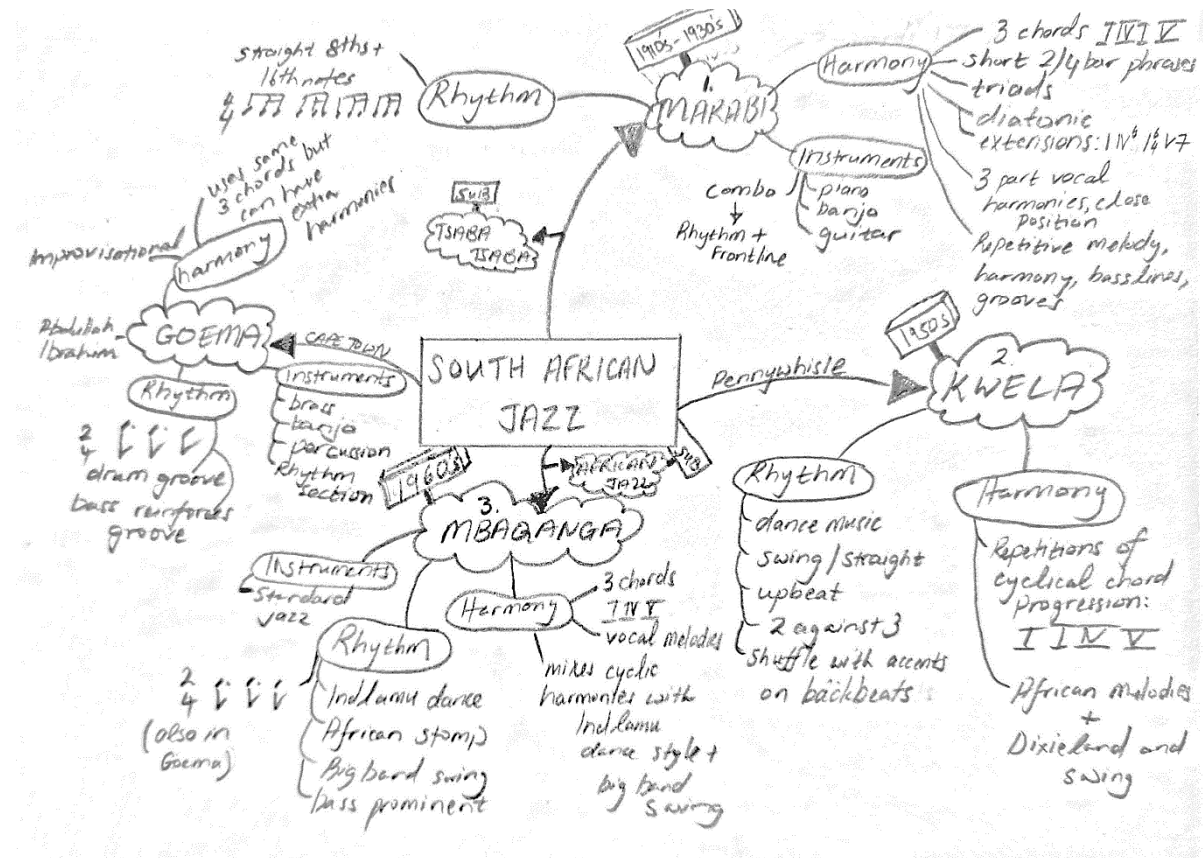 SOUTH AFRICAN
JAZZ
1910's-1930's
1.
MARABI
Rhythm
straight 8ths +
16th notes
4
4
Harmony
3 chords I IV I V
short 2/4 bar phrases
triads
diatonic
extensions: I IV6 I6/4 V7
3 part vocal
harmonies, close
position
Repetitive melody,
harmony, basslines,
grooves
Instruments
piano
banjo
guitar
combo
Rhythm +
Frontline
SUB
TSABA
TSABA
Pennywhisle
1950s
2.
KWELA
Rhythm
dance music
swing/straight
upbeat
2 against 3
shuffle with accents
on backbeats
Harmony
Repetitions of
cyclical chord
progression:
I I IV V
African melodies
+
Dixieland and
swing
SUB
AFRICAN
JAZZ
1960's
3.
MBAQANGA
Instruments
Standard
jazz
Rhythm
2
4
(also in
Goema)
Indlamu dance
African stomp
Big band swing
bass prominent
Harmony
3 chords
I IV V
vocal melodies
mixes cyclic
harmonies with
Indlamu
dance style +
big band
swing
CAPE TOWN
GOEMA
Abdullah
Ibrahim
harmony
Improvisational
uses same
3 chords but
can have
extra
harmonies
Instruments
brass
banjo
percussion
Rhythm
section
Rhythm
2
4
drum groove
bass reinforces
groove